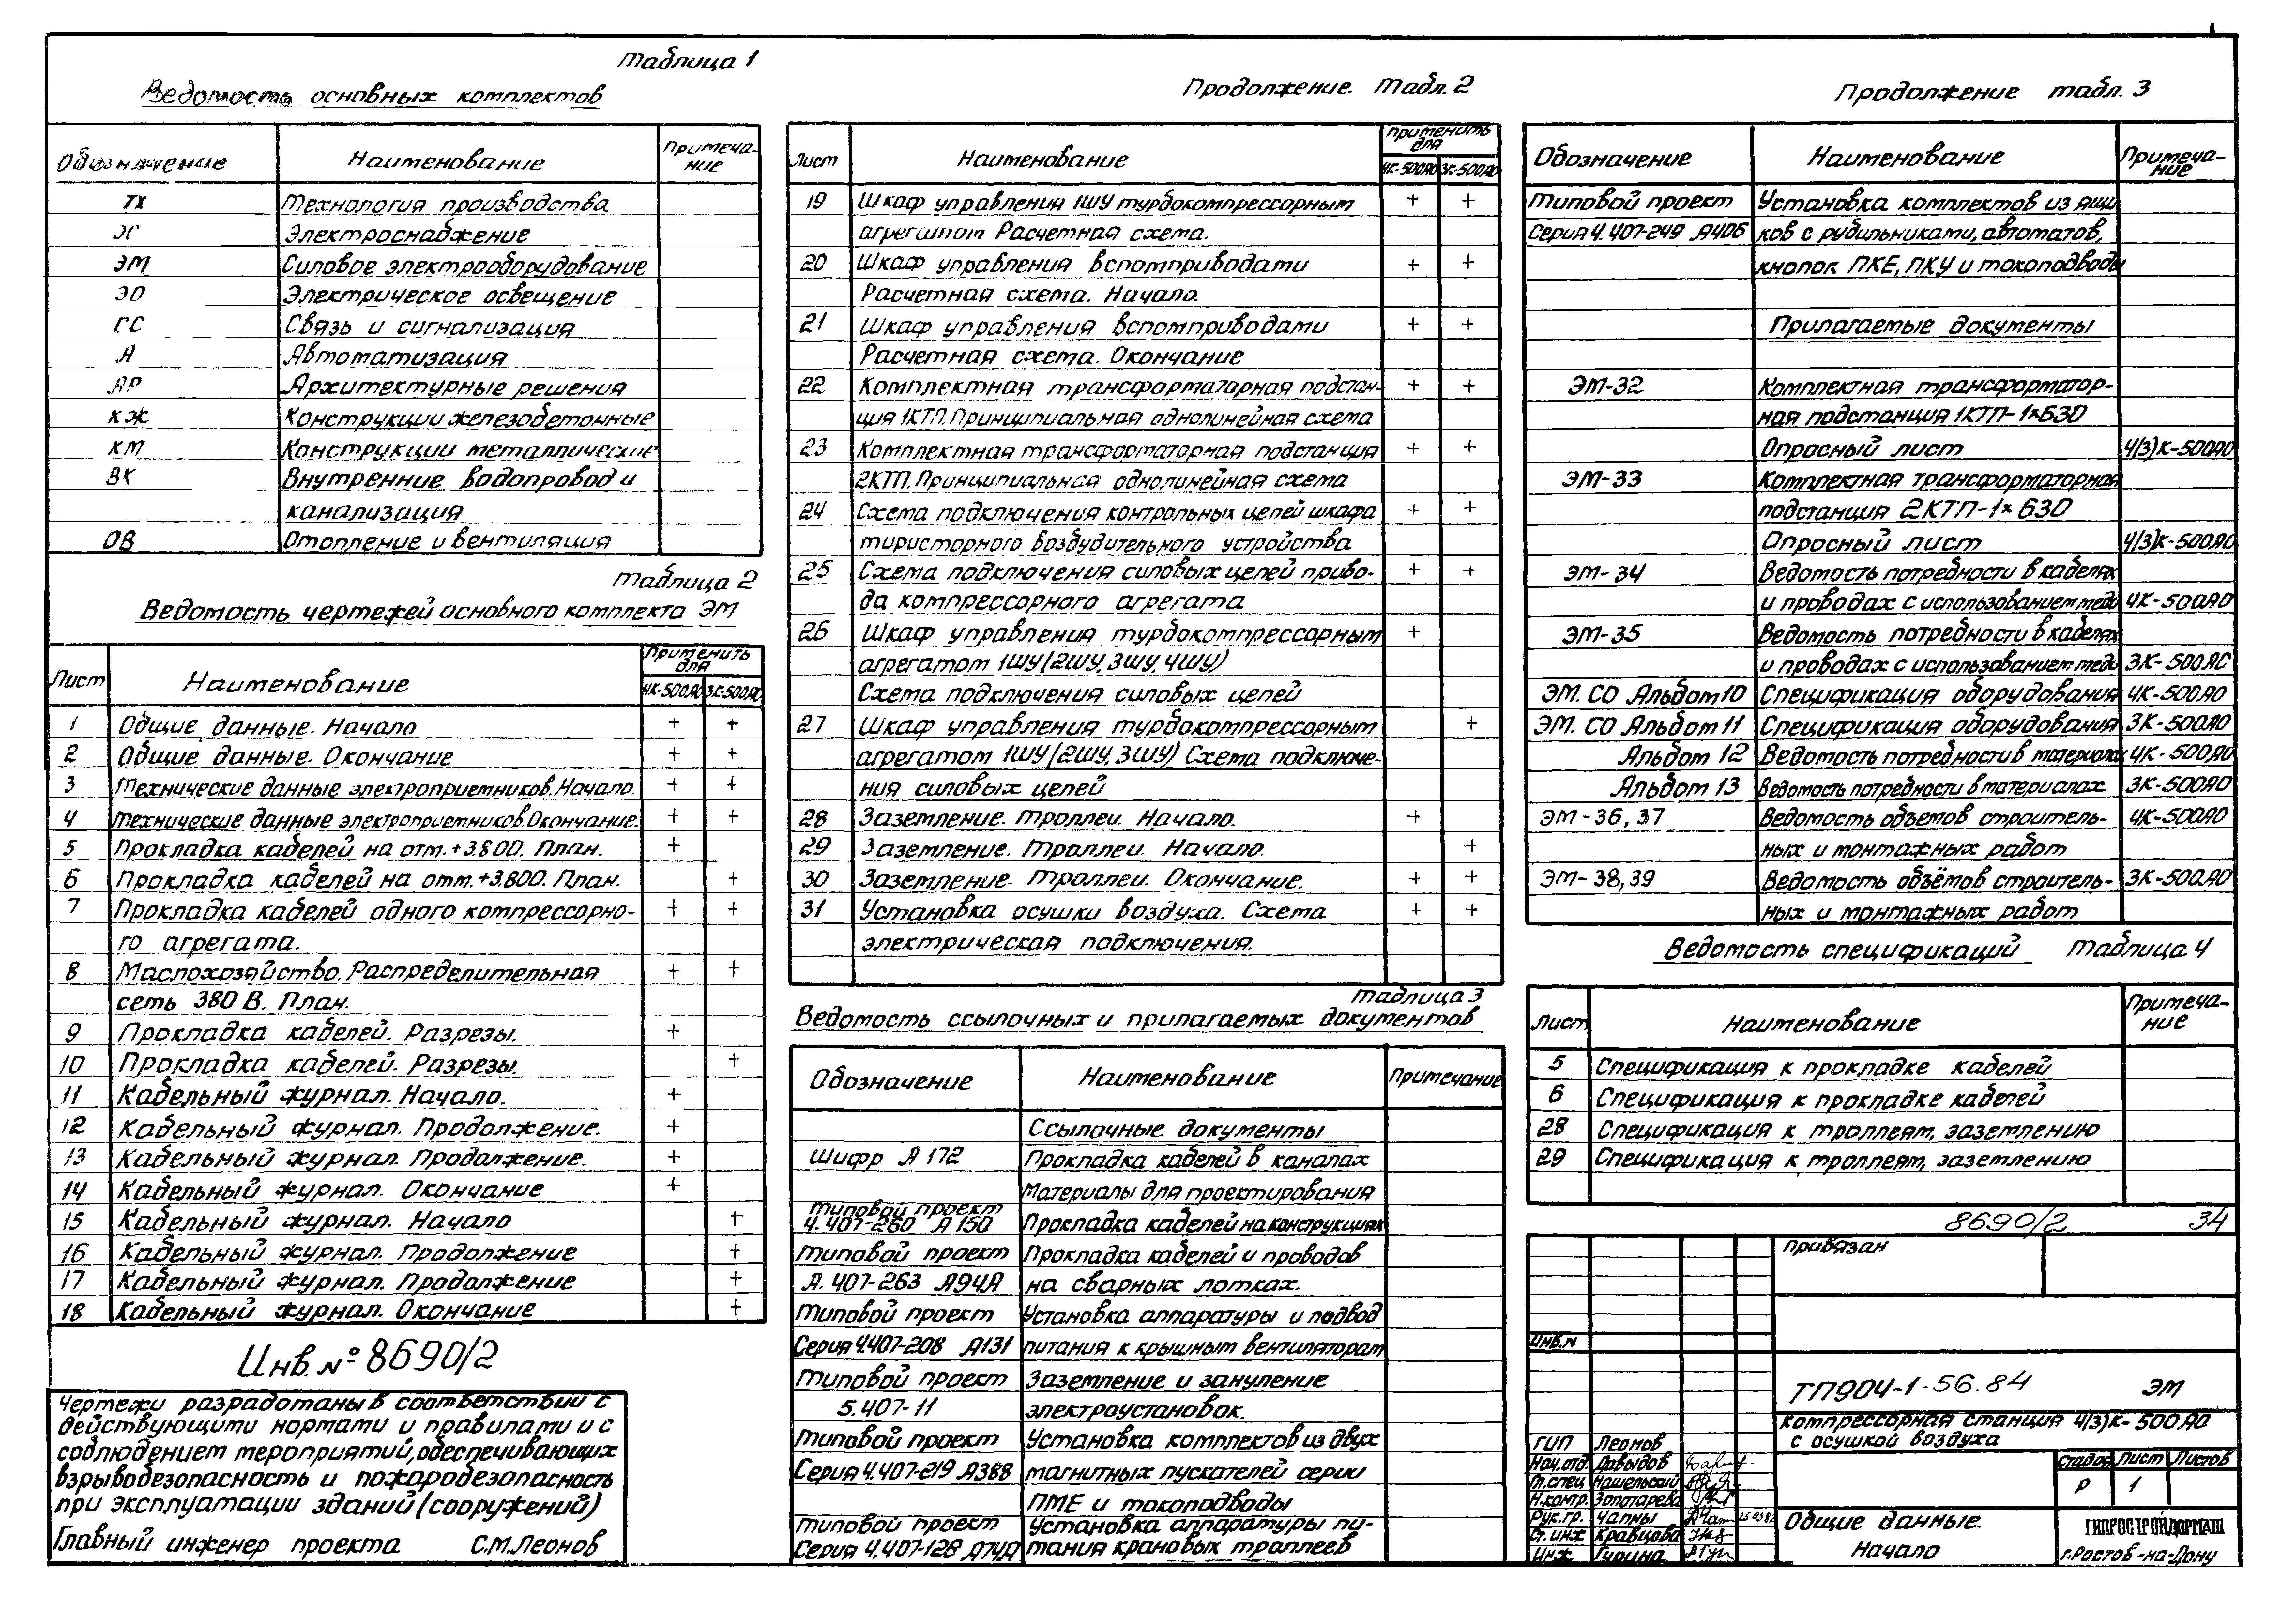 Таблица 1
Ведомость основных комплектов
Обозначение Наименование Примеча-
ние
ТХ Технология производства
ЭС Электроснабжение
ЭМ Силовое электрооборудование
ЭО Электрическое освещение
СС Связь и сигнализация
А Автоматизация
АР Архитектурные решения
КЖ Конструкции железобетонные
КМ Конструкции металлические
ВК Внутренние водопровод и
канализация
ОВ Отопление и вентиляция
Таблица 2
Ведомость чертежей основного комплекта ЭМ
Лист Наименование Применить
для
4К-500АО 3К-500АО
1 Общие данные. Начало + +
2 Общие данные. Окончание + +
3 Технические данные электроприемников. Начало. + +
4 Технические данные электроприемников. Окончание. + +
5 Прокладка кабелей на отм. +3.800. План. +
6 Прокладка кабелей на отм. +3.800. План. +
7 Прокладка кабелей одного компрессорно- + +
го агрегата.
8 Маслохозяйство. Распределительная + +
сеть 380 В. План.
9 Прокладка кабелей. Разрезы. +
10 Прокладка кабелей. Разрезы. +
11 Кабельный журнал. Начало. +
12 Кабельный журнал. Продолжение. +
13 Кабельный журнал. Продолжение. +
14 Кабельный журнал. Окончание +
15 Кабельный журнал. Начало +
16 Кабельный журнал. Продолжение +
17 Кабельный журнал. Продолжение +
18 Кабельный журнал. Окончание +
Инв. № 8690/2
Чертежи разработаны в соответствии с
действующими нормами и правилами и с
соблюдением мероприятий, обеспечивающих
взрывобезопасность и пожаробезопасность
при эксплуатации зданий (сооружений)
Главный инженер проекта С.М. Леонов
Продолжение табл. 2
Лист Наименование Применить
для
4К-500АО 3К-500АО
19 Шкаф управления 1ШУ турбокомпрессорным + +
агрегатом Расчетная схема.
20 Шкаф управления вспомприводами + +
Расчетная схема. Начало.
21 Шкаф управления вспомприводами + +
Расчетная схема. Окончание
22 Комплектная трансформаторная подстан- + +
ция 1КТП. Принципиальная однолинейная схема
23 Комплектная трансформаторная подстанция + +
2КТП. Принципиальная однолинейная схема
24 Схема подключения контрольных цепей шкафа + +
тиристорного возбудительного устройства
25 Схема подключения силовых цепей приво- + +
да компрессорного агрегата
26 Шкаф управления турбокомпрессорным +
агрегатом 1ШУ (2ШУ, 3ШУ, 4ШУ)
Схема подключения силовых цепей
27 Шкаф управления турбокомпрессорным +
агрегатом 1ШУ (2ШУ, 3ШУ) Схема подключе-
ния силовых цепей
28 Заземление. Троллеи. Начало. +
29 Заземление. Троллеи. Начало. +
30 Заземление. Троллеи. Окончание. + +
31 Установка осушки воздуха. Схема + +
электрическая подключения.
Таблица 3
Ведомость ссылочных и прилагаемых документов
Обозначение Наименование Примечание
Ссылочные документы
Шифр А 172 Прокладка кабелей в каналах
Материалы для проектирования
Типовой проект
4.407-260 А 150 Прокладка кабелей на конструкциях
Типовой проект Прокладка кабелей и проводов
А. 407-263 А94А на сварных лотках.
Типовой проект Установка аппаратуры и подвод
Серия 4.407-208 А131 питания к крышным вентиляторам
Типовой проект Заземление и зануление
5.407-11 электроустановок.
Типовой проект Установка комплектов из двух
Серия 4.407-219 А388 магнитных пускателей серии
ПМЕ и токоподводы
Типовой проект Установка аппаратуры пи-
Серия 4.407-128 А74А тания крановых троллеев
Продолжение табл. 3
Обозначение Наименование Примеча-
ние
Типовой проект Установка комплектов из ящи
Серия 4.407-249 А406 ков с рубильниками, автоматов,
кнопок ПКЕ, ПКУ и токоподводы
Прилагаемые документы
ЭМ-32 Комплектная трансформатор-
ная подстанция 1КТП-1×630
Опросный лист 4(3)К-500АО
ЭМ-33 Комплектная трансформаторная
подстанция 2КТП-1×630
Опросный лист 4(3)К-500АО
ЭМ-34 Ведомость потребности в кабелях
и проводах с использованием меди 4К-500АО
ЭМ-35 Ведомость потребности в кабелях
и проводах с использованием меди 3К-500АО
ЭМ. СО Альбом 10 Спецификация оборудования 4К-500АО
ЭМ. СО Альбом 11 Спецификация оборудования 3К-500АО
Альбом 12 Ведомость потребности в материалах 4К-500АО
Альбом 13 Ведомость потребности в материалах 3К-500АО
ЭМ-36, 37 Ведомость объемов строитель- 4К-500АО
ных и монтажных работ
ЭМ-38, 39 Ведомость объёмов строитель- 3К-500АО
ных и монтажных работ
Ведомость спецификаций Таблица 4
Лист Наименование Примеча-
ние
5 Спецификация к прокладке кабелей
6 Спецификация к прокладке кабелей
28 Спецификация к троллеям, заземлению
29 Спецификация к троллеям, заземлению
8690/2 34
Привязан
Инв.№
ТП904-1-56.84 ЭМ
Компрессорная станция 4(3)К-500АО
с осушкой воздуха
ГИП Леонов
Нач.отд. Давыдов
Гл.спец Нашельский
Н.контр. Золотарева
Рук.гр. Чапны
Ст.инж Кравцова
Инж Гурина
Стадия Лист Листов
Р 1
Общие данные.
Начало
ГИПРОСТРОЙДОРМАШ
г.Ростов-на-Дону